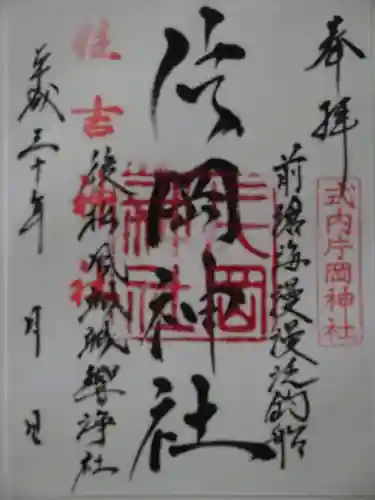 奉拝
式内片岡神社
前碧海漫漫泛釣船
片岡神社
片岡神社
住吉神社
後松風颯颯響浄社
平成三十年 月 日